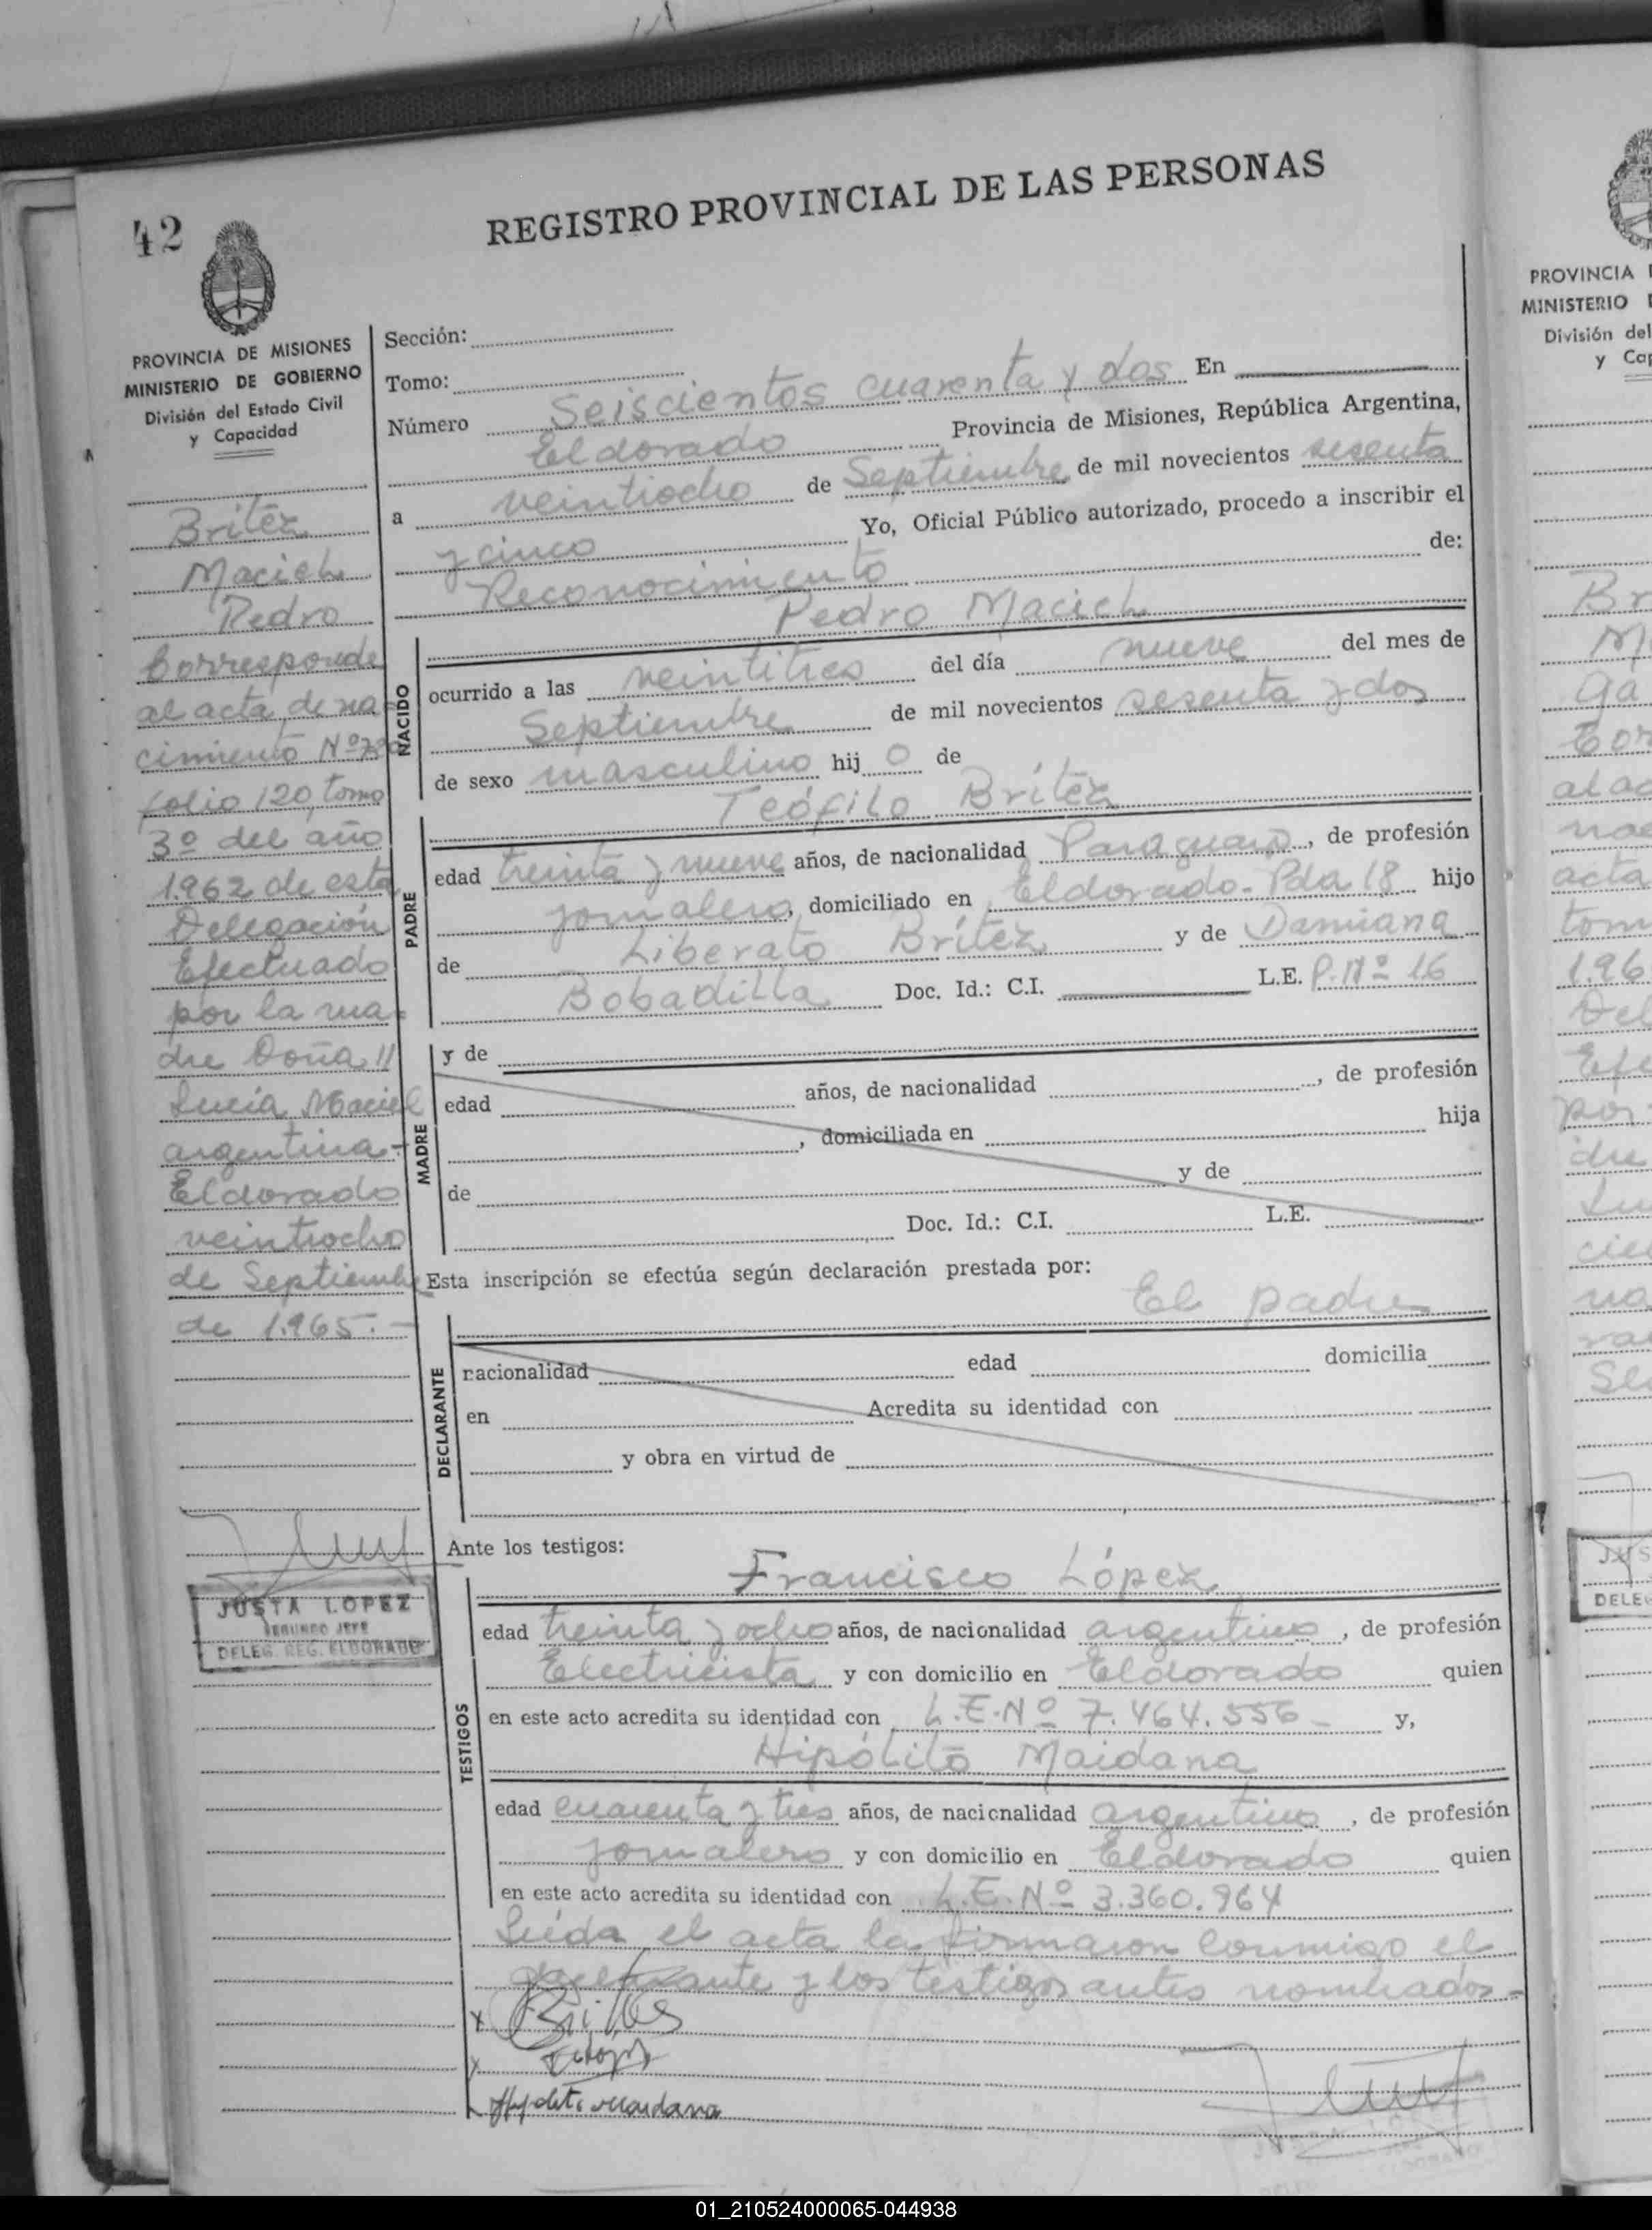 REGISTRO PROVINCIAL DE LAS PERSONAS
42
PROVINCIA DE MISIONES
MINISTERIO DE GOBIERNO
División del Estado Civil
y Capacidad
Britez
Maciel
Pedro
Corresponde
al acta de na
cimiento Nº
folio 120, tomo
3º del año
1.962 de esta
Delegación
Efectuado
por la ma-
dre Doña //
Lucía Maciel
argentina.-
Eldorado
veintiocho
de Septiembre
de 1.965.-
JUSTA LOPEZ
SEGUNDO JEFE
DELEG. REG. ELDORADO
Sección:
Tomo:
Número Seiscientos cuarenta y dos En
Eldorado Provincia de Misiones, República Argentina,
a veintiocho de Septiembre de mil novecientos sesenta
y cinco Yo, Oficial Público autorizado, procedo a inscribir el
Reconocimiento de:
Pedro Maciel
NACIDO
ocurrido a las veintitres del día nueve del mes de
Septiembre de mil novecientos sesenta y dos
de sexo masculino hij o de
Teófilo Brítez
PADRE
edad treinta y nueve años, de nacionalidad Paraguayo, de profesión
jornalero, domiciliado en Eldorado-Pda 18 hijo
de Liberato Brítez y de Damiana
Bobadilla Doc. Id.: C.I. L.E. P.Nº 16
MADRE
y de
edad años, de nacionalidad , de profesión
, domiciliada en hija
de y de
Doc. Id.: C.I. L.E.
Esta inscripción se efectúa según declaración prestada por:
El padre
DECLARANTE
nacionalidad edad domicilia
en Acredita su identidad con
y obra en virtud de
Ante los testigos:
Francisco López
TESTIGOS
edad treinta y ocho años, de nacionalidad argentino, de profesión
Electricista y con domicilio en Eldorado quien
en este acto acredita su identidad con L.E.Nº 7.464.556- y,
Hipólito Maidana
edad cuarenta y tres años, de nacionalidad argentino, de profesión
jornalero y con domicilio en Eldorado quien
en este acto acredita su identidad con L.E.Nº 3.360.964
Leída el acta la firmaron conmigo el
declarante y los testigos antes nombrados.-
PROVINCIA
MINISTERIO
División del
y Cap
01_210524000065-044938